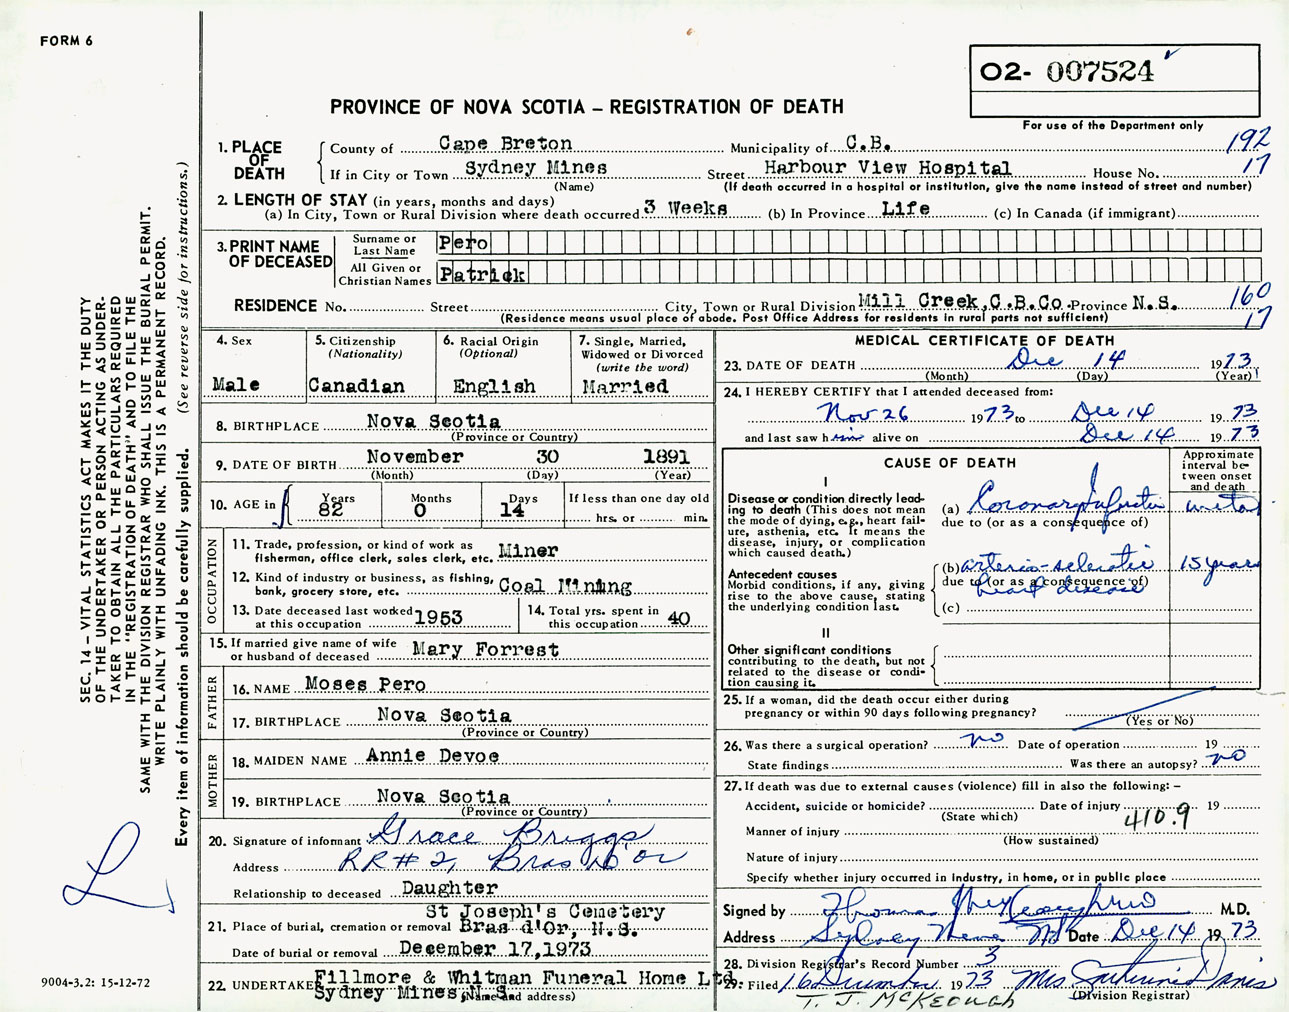 FORM 6
O2- 007524
For use of the Department only
PROVINCE OF NOVA SCOTIA – REGISTRATION OF DEATH
192
17
1. PLACE OF DEATH
County of Cape Breton Municipality of C.B.
If in City or Town Sydney Mines Street Harbour View Hospital House No.
(Name) (If death occurred in a hospital or institution, give the name instead of street and number)
2. LENGTH OF STAY (in years, months and days)
(a) In City, Town or Rural Division where death occurred 3 Weeks (b) In Province Life (c) In Canada (if immigrant)
3. PRINT NAME OF DECEASED
Surname or Last Name Pero
All Given or Christian Names Patrick
RESIDENCE No. Street City, Town or Rural Division Mill Creek, C.B.Co. Province N.S.
(Residence means usual place of abode. Post Office Address for residents in rural parts not sufficient)
160
17
4. Sex
Male
5. Citizenship
(Nationality)
Canadian
6. Racial Origin
(Optional)
English
7. Single, Married,
Widowed or Divorced
(write the word)
Married
8. BIRTHPLACE Nova Scotia
(Province or Country)
9. DATE OF BIRTH November 30 1891
(Month) (Day) (Year)
10. AGE in
Years 82
Months 0
Days 14
If less than one day old
hrs. or min.
OCCUPATION
11. Trade, profession, or kind of work as
fisherman, office clerk, sales clerk, etc. Miner
12. Kind of industry or business, as fishing,
bank, grocery store, etc. Coal Mining
13. Date deceased last worked
at this occupation 1953
14. Total yrs. spent in
this occupation 40
15. If married give name of wife
or husband of deceased Mary Forrest
FATHER
16. NAME Moses Pero
17. BIRTHPLACE Nova Scotia
(Province or Country)
MOTHER
18. MAIDEN NAME Annie Devoe
19. BIRTHPLACE Nova Scotia
(Province or Country)
20. Signature of informant Grace Briggs
Address RR# 2, Bras D'or
Relationship to deceased Daughter
St Joseph's Cemetery
21. Place of burial, cremation or removal Bras d'Or, N.S.
Date of burial or removal December 17,1973
22. UNDERTAKER Fillmore & Whitman Funeral Home Ltd.
Sydney Mines, N.S.
(Name and address)
MEDICAL CERTIFICATE OF DEATH
23. DATE OF DEATH Dec 14 1973
(Month) (Day) (Year)
24. I HEREBY CERTIFY that I attended deceased from:
Nov 26 1973 to Dec 14 1973
and last saw him alive on Dec 14 1973
CAUSE OF DEATH
Approximate
interval be-
tween onset
and death
I
Disease or condition directly lead-
ing to death (This does not mean
the mode of dying, e.g., heart fail-
ure, asthenia, etc. It means the
disease, injury, or complication
which caused death.)
(a) Coronary Infarction
due to (or as a consequence of)
Antecedent causes
Morbid conditions, if any, giving
rise to the above cause, stating
the underlying condition last.
(b) arterio-sclerotic 15 years
due to (or as a consequence of)
heart disease
(c)
II
Other significant conditions
contributing to the death, but not
related to the disease or condi-
tion causing it.
25. If a woman, did the death occur either during
pregnancy or within 90 days following pregnancy?
(Yes or No)
26. Was there a surgical operation? no Date of operation 19
State findings Was there an autopsy? no
27. If death was due to external causes (violence) fill in also the following: –
Accident, suicide or homicide? Date of injury 19
(State which)
410.9
Manner of injury
(How sustained)
Nature of injury
Specify whether injury occurred in industry, in home, or in public place
Signed by Thomas M.D.
Address Sydney Mines NS Date Dec 14 1973
28. Division Registrar's Record Number 3
29. Filed 16 December 1973 Mrs. Davis
(Division Registrar)
T. J. McKEOUGH
SEC. 14 – VITAL STATISTICS ACT MAKES IT THE DUTY
OF THE UNDERTAKER OR PERSON ACTING AS UNDER-
TAKER TO OBTAIN ALL THE PARTICULARS REQUIRED
IN THE "REGISTRATION OF DEATH" AND TO FILE THE
SAME WITH THE DIVISION REGISTRAR WHO SHALL ISSUE THE BURIAL PERMIT.
WRITE PLAINLY WITH UNFADING INK. THIS IS A PERMANENT RECORD.
Every item of information should be carefully supplied. (See reverse side for instructions.)
L
9004-3.2: 15-12-72